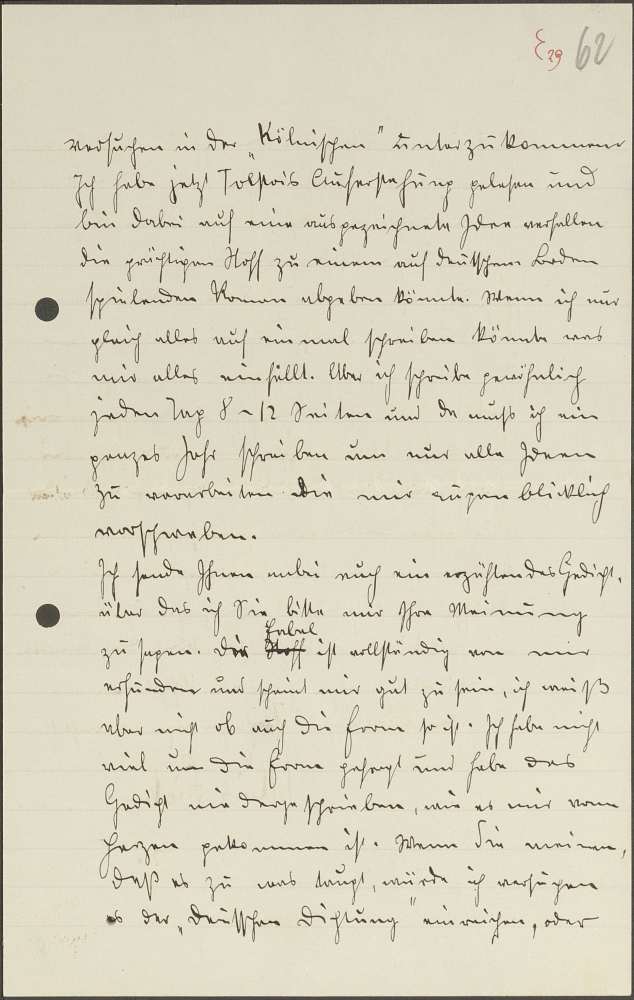 E 29 62
versuchen in der „Kölnischen" unterzukommen
Ich habe jetzt Tolstois Auferstehung gelesen und
bin dabei auf eine ausgezeichnete Idee verfallen
die prächtigen Stoff zu einem auf deutschem Boden
spielenden Roman abgeben könnte. Wenn ich nur
gleich alles auf einmal schreiben könnte was
mir alles einfällt. Aber ich schreibe gewöhnlich
jeden Tag 8–12 Seiten und da muß ich ein
ganzes Jahr schreiben um nur alle Ideen
zu verarbeiten die mir augenblicklich
vorschweben.
Ich sende Ihnen anbei auch ein erzählendes Gedicht,
über das ich Sie bitte mir Ihre Meinung
zu sagen. Die Stoff Fabel ist vollständig von mir
erfunden und scheint mir gut zu sein, ich weiß
aber nicht ob auch die Form so ist. Ich habe nicht
viel um die Form gefragt und habe das
Gedicht niedergeschrieben, wie es mir vom
Herzen gekommen ist. Wenn Sie meinen,
daß es zu was taugt, würde ich versuchen
es der „Deutschen Dichtung" einreichen, oder